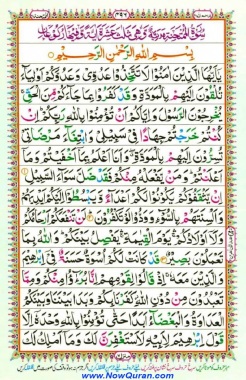 ٤٩٧
سُوْرَةُ الْمُمْتَحِنَةِ مَدَنِيَّةٌ وَّهِيَ ثَلٰثَ عَشْرَةَ اٰيَةً وَّفِيْهَا رُكُوْعَانِ
بِسْمِ اللّٰهِ الرَّحْمٰنِ الرَّحِيْمِ
يٰۤاَيُّهَا الَّذِيْنَ اٰمَنُوْا لَا تَتَّخِذُوْا عَدُوِّيْ وَعَدُوَّكُمْ اَوْلِيَآءَ
تُلْقُوْنَ اِلَيْهِمْ بِالْمَوَدَّةِ وَقَدْ كَفَرُوْا بِمَا جَآءَكُمْ مِّنَ الْحَقِّ
يُخْرِجُوْنَ الرَّسُوْلَ وَاِيَّاكُمْ اَنْ تُؤْمِنُوْا بِاللّٰهِ رَبِّكُمْ اِنْ
كُنْتُمْ خَرَجْتُمْ جِهَادًا فِيْ سَبِيْلِيْ وَابْتِغَآءَ مَرْضَاتِيْ
تُسِرُّوْنَ اِلَيْهِمْ بِالْمَوَدَّةِ وَاَنَا اَعْلَمُ بِمَاۤ اَخْفَيْتُمْ وَمَاۤ
اَعْلَنْتُمْ وَمَنْ يَّفْعَلْهُ مِنْكُمْ فَقَدْ ضَلَّ سَوَآءَ السَّبِيْلِ
اِنْ يَّثْقَفُوْكُمْ يَكُوْنُوْا لَكُمْ اَعْدَآءً وَّيَبْسُطُوْۤا اِلَيْكُمْ اَيْدِيَهُمْ
وَاَلْسِنَتَهُمْ بِالسُّوْٓءِ وَوَدُّوْا لَوْ تَكْفُرُوْنَ لَنْ تَنْفَعَكُمْ اَرْحَامُكُمْ
وَلَاۤ اَوْلَادُكُمْ يَوْمَ الْقِيٰمَةِ يَفْصِلُ بَيْنَكُمْ وَاللّٰهُ بِمَا
تَعْمَلُوْنَ بَصِيْرٌ قَدْ كَانَتْ لَكُمْ اُسْوَةٌ حَسَنَةٌ فِيْۤ اِبْرٰهِيْمَ
وَالَّذِيْنَ مَعَهٗ اِذْ قَالُوْا لِقَوْمِهِمْ اِنَّا بُرَءٰٓؤُا مِنْكُمْ وَمِمَّا
تَعْبُدُوْنَ مِنْ دُوْنِ اللّٰهِ كَفَرْنَا بِكُمْ وَبَدَا بَيْنَنَا وَبَيْنَكُمُ
الْعَدَاوَةُ وَالْبَغْضَآءُ اَبَدًا حَتّٰى تُؤْمِنُوْا بِاللّٰهِ وَحْدَهٗۤ اِلَّا
قَوْلَ اِبْرٰهِيْمَ لِاَبِيْهِ لَاَسْتَغْفِرَنَّ لَكَ وَمَاۤ اَمْلِكُ لَكَ مِنَ
www.NowQuran.com